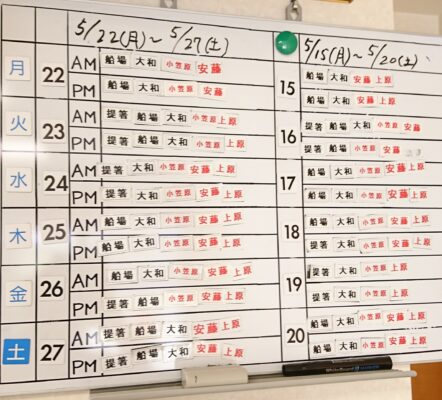 5/22(月)～5/27(土)
5/15(月)～5/20(土)
月 22 AM 船場 大和 小笠原 安藤
PM 船場 大和 小笠原 安藤
火 23 AM 提箸 船場 大和 小笠原 上原
PM 提箸 船場 大和 小笠原 上原
水 24 AM 提箸 大和 小笠原 安藤 上原
PM 提箸 大和 小笠原 安藤 上原
木 25 AM 船場 大和 小笠原 安藤 上原
PM 船場 大和 小笠原 安藤 上原
金 26 AM 船場 大和 小笠原 安藤 上原
PM 提箸 船場 小笠原 安藤 上原
土 27 AM 提箸 船場 大和 安藤 上原
PM 提箸 船場 大和 安藤 上原
15 船場 大和 安藤 上原
船場 大和 安藤 上原
16 提箸 船場 大和 小笠原 安藤
提箸 船場 小笠原 安藤
17 船場 大和 小笠原 安藤 上原
船場 大和 小笠原 安藤 上原
18 船場 大和 小笠原 安藤 上原
提箸 大和 小笠原 安藤 上原
19 提箸 大和 小笠原 安藤 上原
提箸 船場 小笠原 安藤 上原
20 船場 大和 小笠原 安藤 上原
船場 大和 小笠原 安藤 上原
WhiteBoard